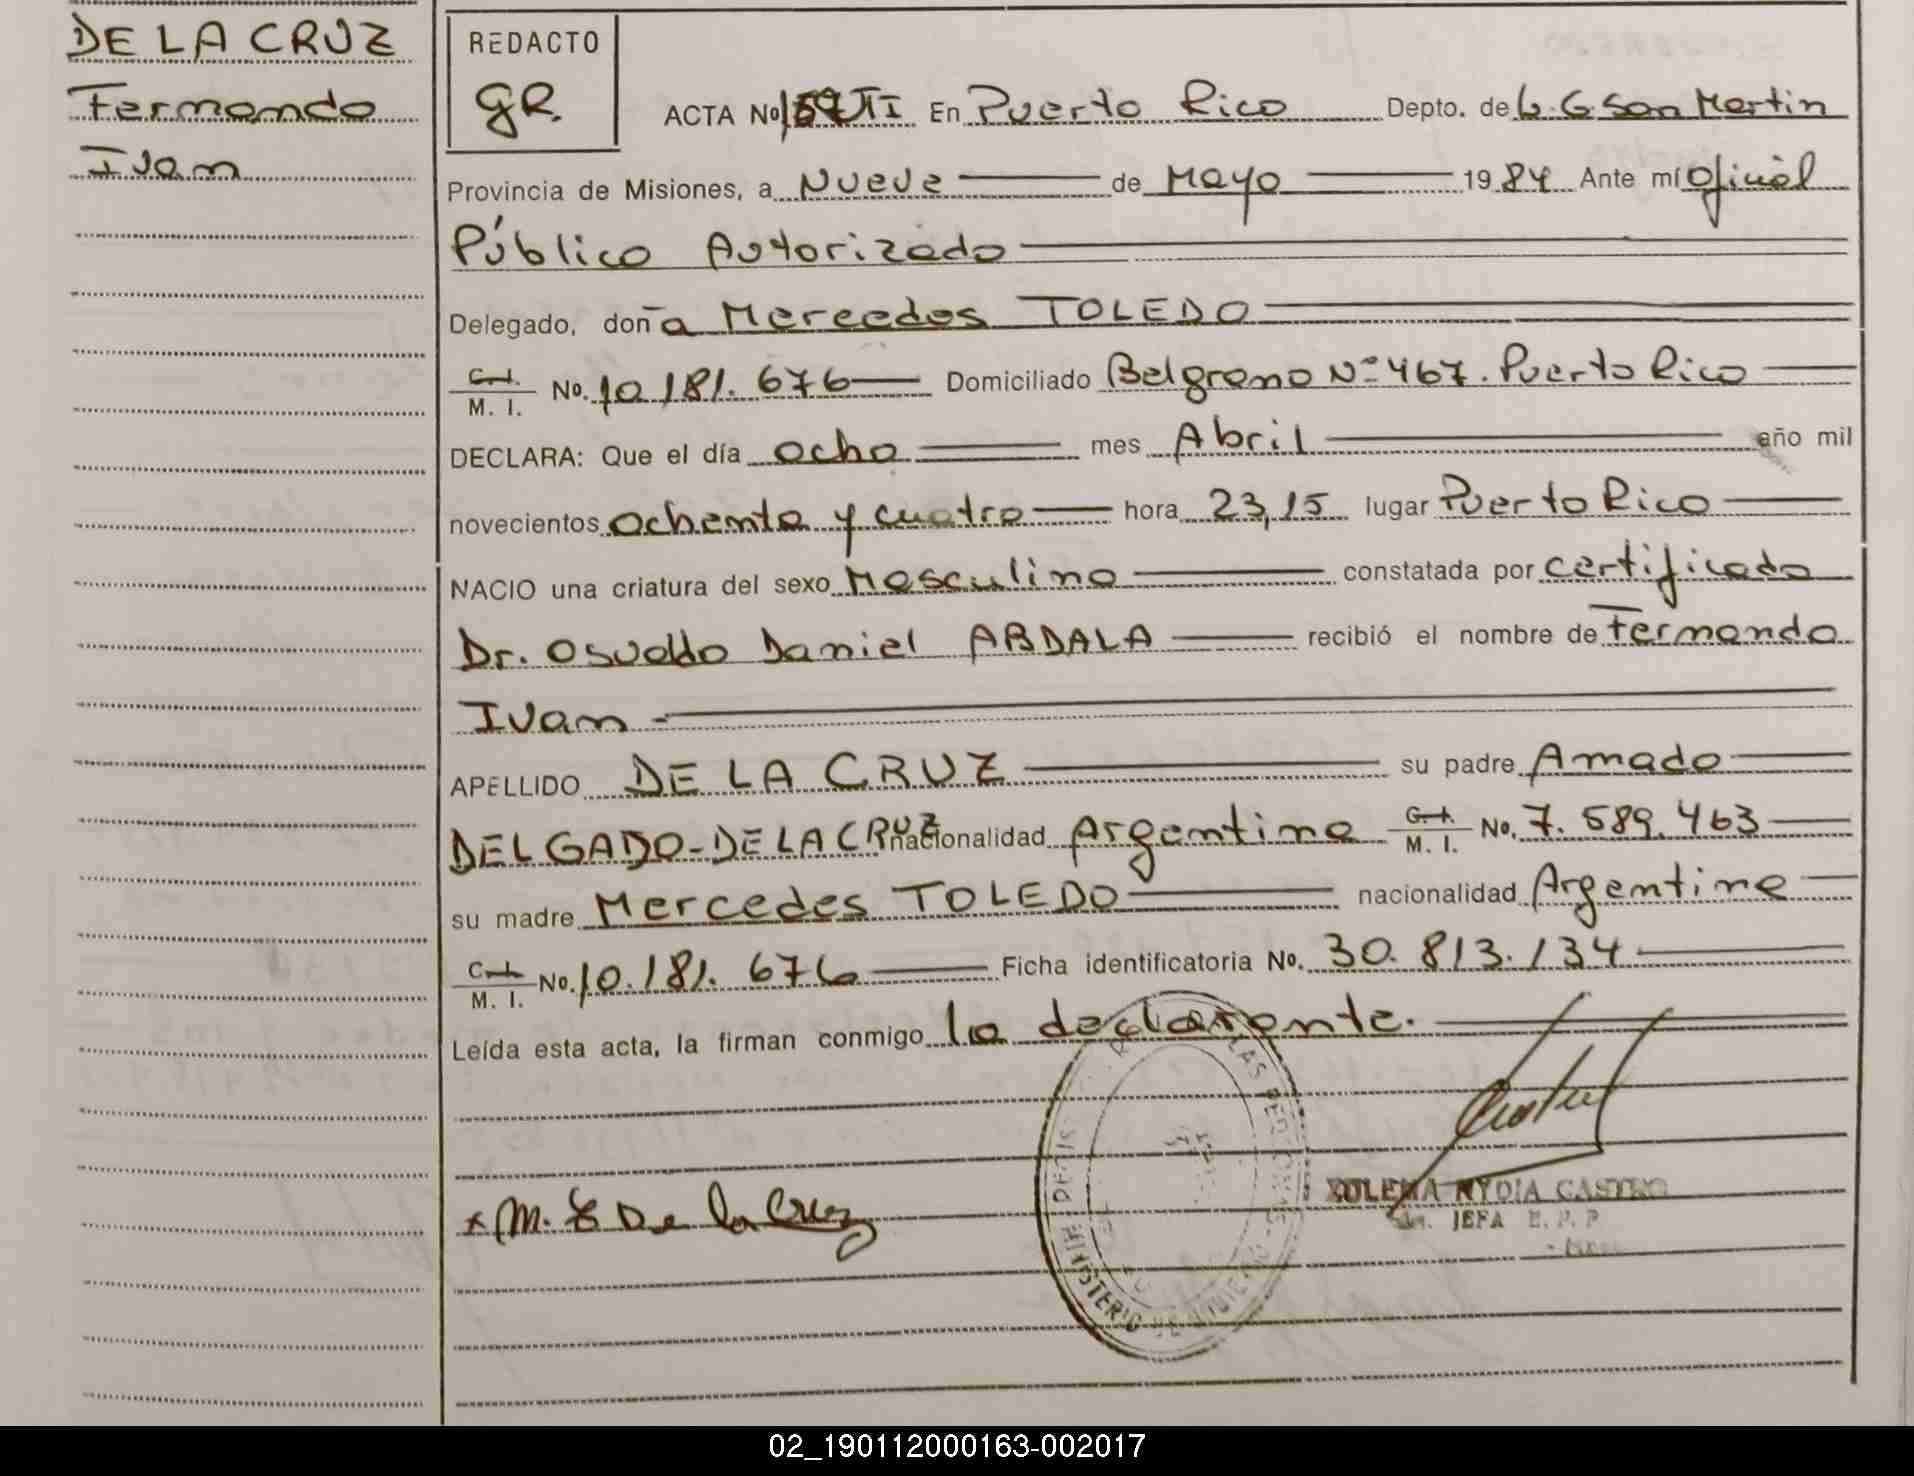 DE LA CRUZ
Fernando
Ivan
REDACTO
GR.
ACTA No 159 TI En Puerto Rico Depto. de L. G. San Martin
Provincia de Misiones, a Nueve de Mayo 1984 Ante mí Oficial
Público Autorizado
Delegado, doña Mercedes TOLEDO
C. I. M. I. No. 10.181.676 Domiciliado Belgrano Nº 467. Puerto Rico
DECLARA: Que el día ocho mes Abril año mil
novecientos ochenta y cuatro hora 23,15 lugar Puerto Rico
NACIO una criatura del sexo Masculino constatada por certificado
Dr. Osvaldo Daniel ABDALA recibió el nombre de Fernando
Ivan
APELLIDO DE LA CRUZ su padre Amado
DELGADO-DE LA CRUZ nacionalidad Argentina C. I. M. I. No. 7.589.463
su madre Mercedes TOLEDO nacionalidad Argentina
C. I. M. I. No. 10.181.676 Ficha identificatoria No. 30.813.134
Leída esta acta, la firman conmigo la declarante.
x M. E De la Cruz
MINISTERIO DE
NYDIA CASTRO
JEFA
02_190112000163-002017